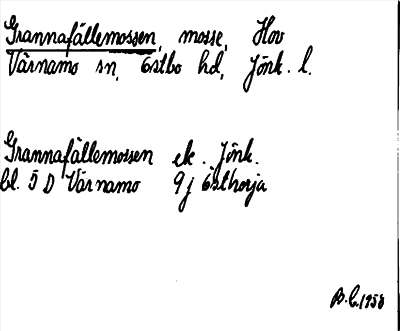 Grannafällemossen, mosse, Hov
Värnamo sn, Östbo hd, Jönk. l.
Grannafällemossen ek. Jönk.
bl. 5 D Värnamo 9j Östhorja
B.L. 1958